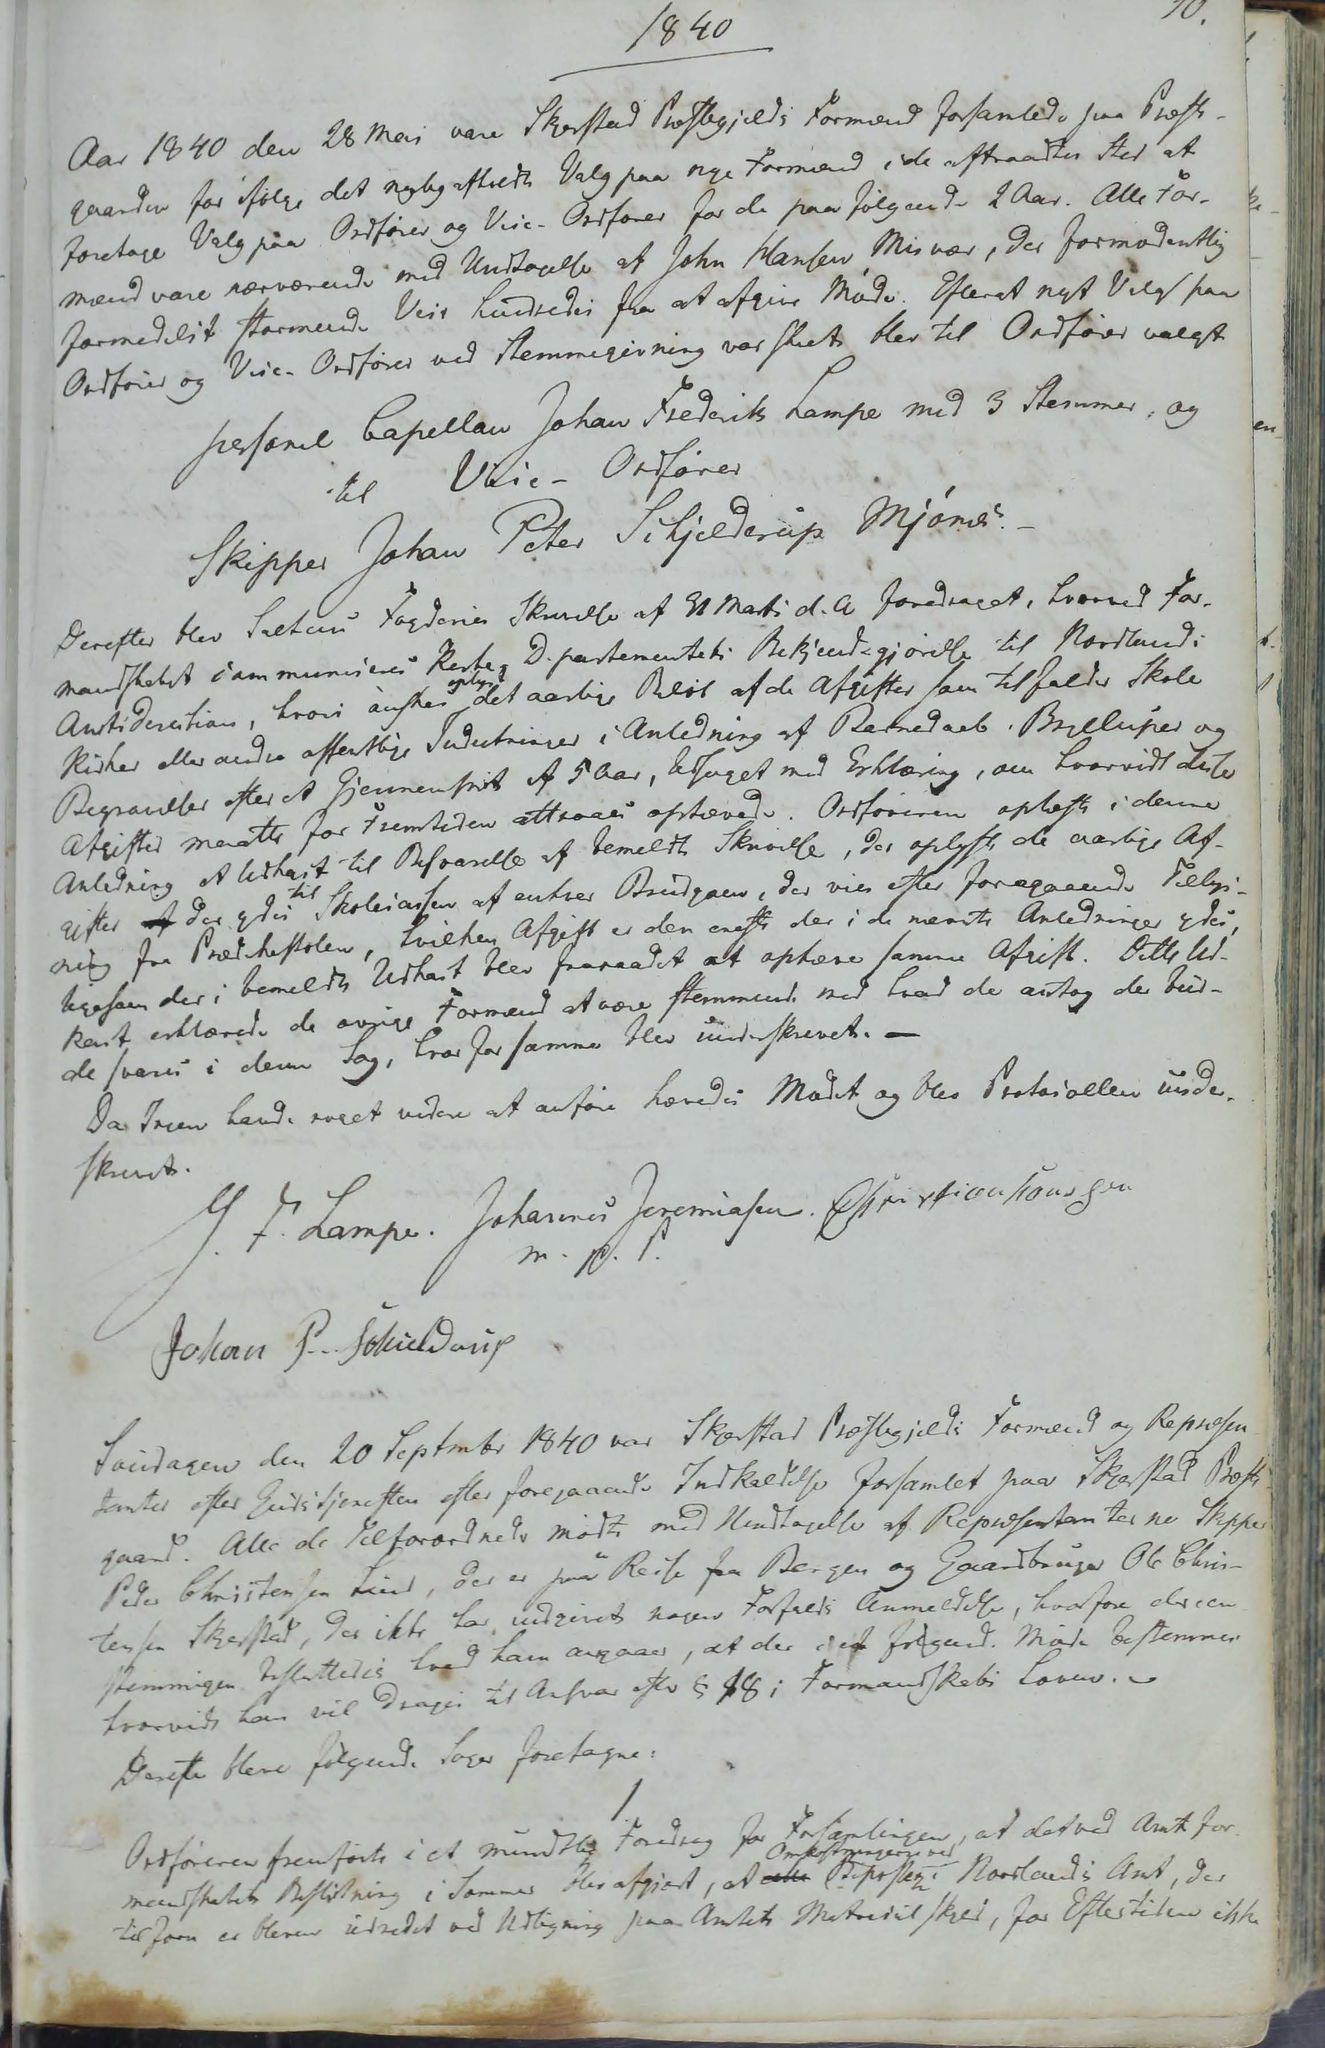 10.
1840
Aar 1840 den 28 Mai vare Skjerstad Præstegjelds Formænd forsamlede paa Præste-
gaarden for ifølge det nylig afholdte Valg paa nye Formænd i de aftraadtes Sted at
foretage Valg paa Ordfører og Vice-Ordfører for de paafølgende 2 Aar. Alle For-
mænd vare nærværende med Undtagelse af John Hansen Misvær, der formodentlig
formedelst stormende Veir hindredes fra at afgive Møde. Efterat nyt Valg paa
Ordfører og Vice-Ordfører ved Stemmegivning var skeet blev til Ordfører valgt
personel Capellan Johan Frederik Lampe med 3 Stemmer, og
til Vice-Ordfører
Skipper Johan Peter Schjelderup Mjönes. -
Derefter blev Saltens Fogderies Skrivelse af 31 Marts d. A foredraget, hvorved For-
mandskabet communiceres Kirke Departementets Bekjendtgjørelse til Nordlands
Amtsdirection, hvori ønskes oplyst det aarlige Beløb af de Afgifter som tilfalder Skole
Kirker eller andre offentlige Indretninger i Anledning af Barnedaab. Brylluper og
Begravelser efter et Gjennemsnit af 5 Aar, ledsaget med Erklæring, om hvorvidt disse
Afgifter maatte for Fremtiden attraaes ophævede. Ordføreren oplæste i denne
Anledning et Udkast til Besvarelse af bemeldte Skrivelse, der oplyste de aarlige Af-
gifter der ydes til Skolecassen af enhver Brudgom, der vies efter foregaaende Tillys-
ning fra Prædikestolen, hvilken Afgift er den eneste der i de nævnte Anledninger ydes,
ligesom der i bemeldte Udkast blev fraraadet at ophæve samme Afgift. Dette Ud-
kast erklærede de øvrige Formænd at være stemmende med hvad de antog der bur-
de svares i denne Sag, hvorfor samme blev underskrevet. -
Da Ingen havde noget videre at anføre hævedes Mødet og blev Protocollen under-
skrevet.
J. F. Lampe. Johannes Jeremiasen. Christian
m. p. P.
Johan P. Schielderup
Søndagen den 20 September 1840 var Skjerstad Præstegjelds Formænd og Repræsen
tanter efter Gudstjenesten efter foregaaende Indkaldelse forsamlet paa Skjerstad Præste-
gaard. Alle de Tilforordnede mødte med Undtagelse af Repræsentanterne Skipper
Peder Christensen Lund, der er paa Reise fra Bergen og Gaardbruger Ole Chris-
tensen Skjerstad, der ikke har indgivet nogen Forfalds Anmeldelse, hvorfore der een
stemmigen besluttedes hvad ham angaaer, at der i et følgende Møde bestemmes
hvorvidt han vil drages til Ansvar efter § 18 i Formandskabs Loven. -
Derefter bleve følgende Sager foretagne:
1
Ordføreren fremførte i et mundtlig Foredrag for Forsamlingen, at det ved Amts for-
mandskabets Beslutning i Sommer blev afgjort, at Omkostningerne ved Bipost i Nordlands Amt, der
tilforn er bleven udredet ved Udligning paa Amtets Matricul skyld, for Eftertiden ikke